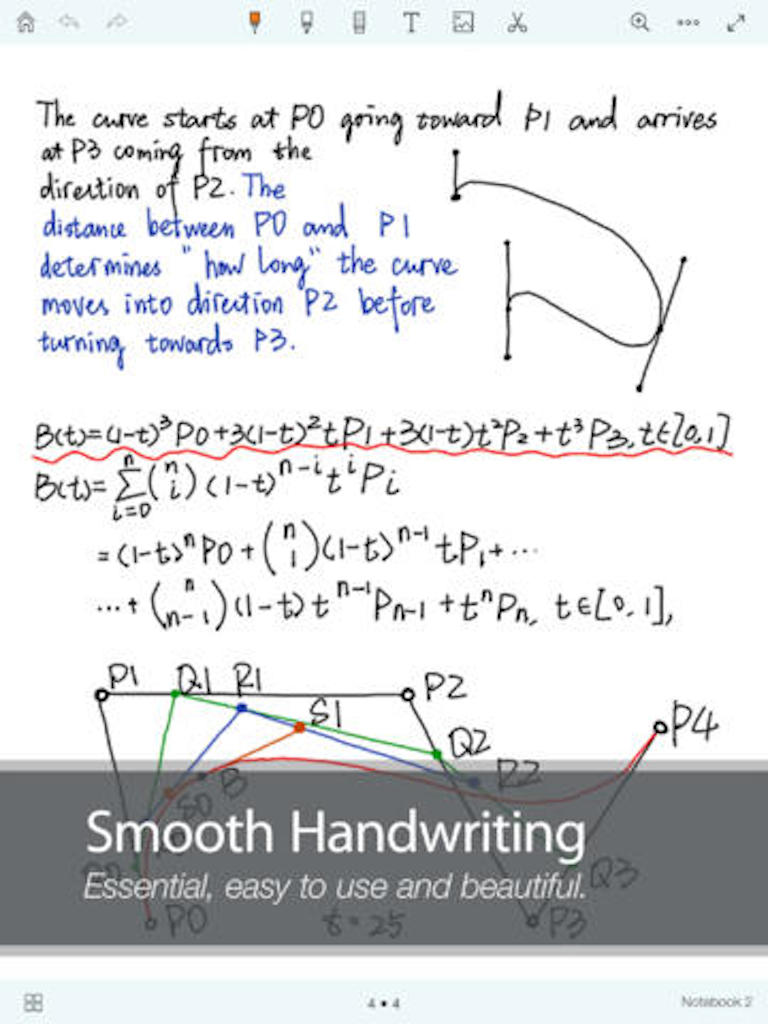 The curve starts at P0 going toward P1 and arrives
at P3 coming from the
direction of P2. The
distance between P0 and P1
determines "how long" the curve
moves into direction P2 before
turning towards P3.
B(t)=(1-t)³P0+3(1-t)²tP₁+3(1-t)t²P₂+t³P₃, t∈[0,1]
B(t)=∑ᵢ₌₀ⁿ(ⁿᵢ)(1-t)ⁿ⁻ⁱtⁱPi
=(1-t)ⁿP0+(ⁿ₁)(1-t)ⁿ⁻¹tP₁+...
...+(ⁿₙ₋₁)(1-t)tⁿ⁻¹Pₙ₋₁+tⁿPₙ, t∈[0,1],
P1 Q1 R1 P2
S1 P4
Q2
R2
S0 B
Smooth Handwriting
Essential, easy to use and beautiful.
Q3
P0 t=25 P3
4 • 4 Notebook 2